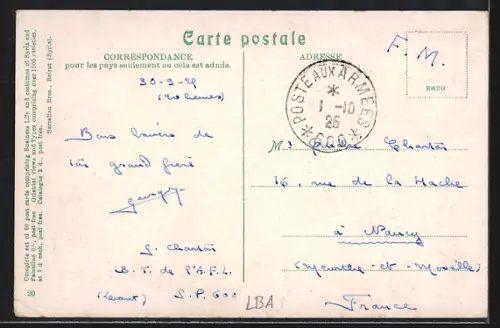 Carte postale
CORRESPONDANCE
pour les pays seulement ou cela est admis.
ADRESSE
F. M.
30-9-25
Bons baisers de
ton grand frère
G. Charton
B. T. de l'A.F.L.
(Levant) S.P. 600
POSTE AUX ARMÉES
1-10
25
600
Mr André Charton
16, rue de la Hache
à Nancy
(Meurthe-et-Moselle)
France
LBA
Complete set of 60 post cards comprising Business Life and costumes of Syria and
Palestine post free. Oriental views and Types comprising over 1000 varieties,
at 1 d. each, post free. Catalogue 2 d. post free.
Sarrafian Bros., Beirut (Syria).
20